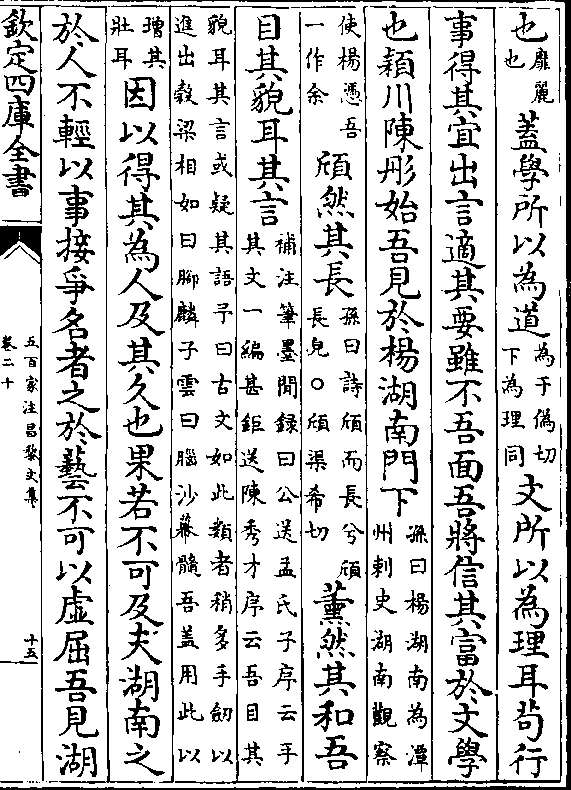 也靡麗也蓋學所以為道為于偽切下為理同文所以為理耳茍行
事得其宜出言適其要雖不吾面吾將信其富於文學
也穎川陳彤始吾見於楊湖南門下孫曰楊湖南為潭州刺史湖南觀察
使楊憑吾一作余頎然其長孫曰詩頎而長兮頎長皃○頎渠希切薰然其和吾
目其貌耳其言補注筆墨聞録曰公送孟氏子序云乎其文一編甚鉅送陳秀才序云吾目其
貌耳其言或疑其語予曰古文如此類者稍多手劒以進出穀梁相如曰脚麟子雲曰腦沙幕髓吾蓋用此以
璔其壯耳因以得其為人及其久也果若不可及夫湖南之
於人不輕以事接爭名者之於藝不可以虚屈吾見湖
欽定四庫全書
五百家注昌黎文集
卷二十
十五